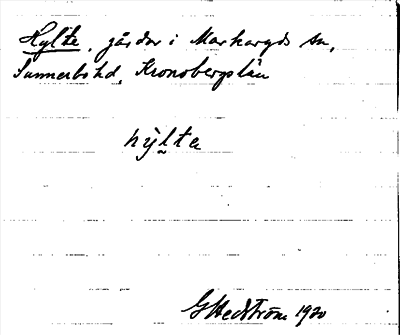 Hylte, gårdar i Markaryds sn,
Sunnerbo hd, Kronobergs län
hy̆l̮ta
GHedström 1920